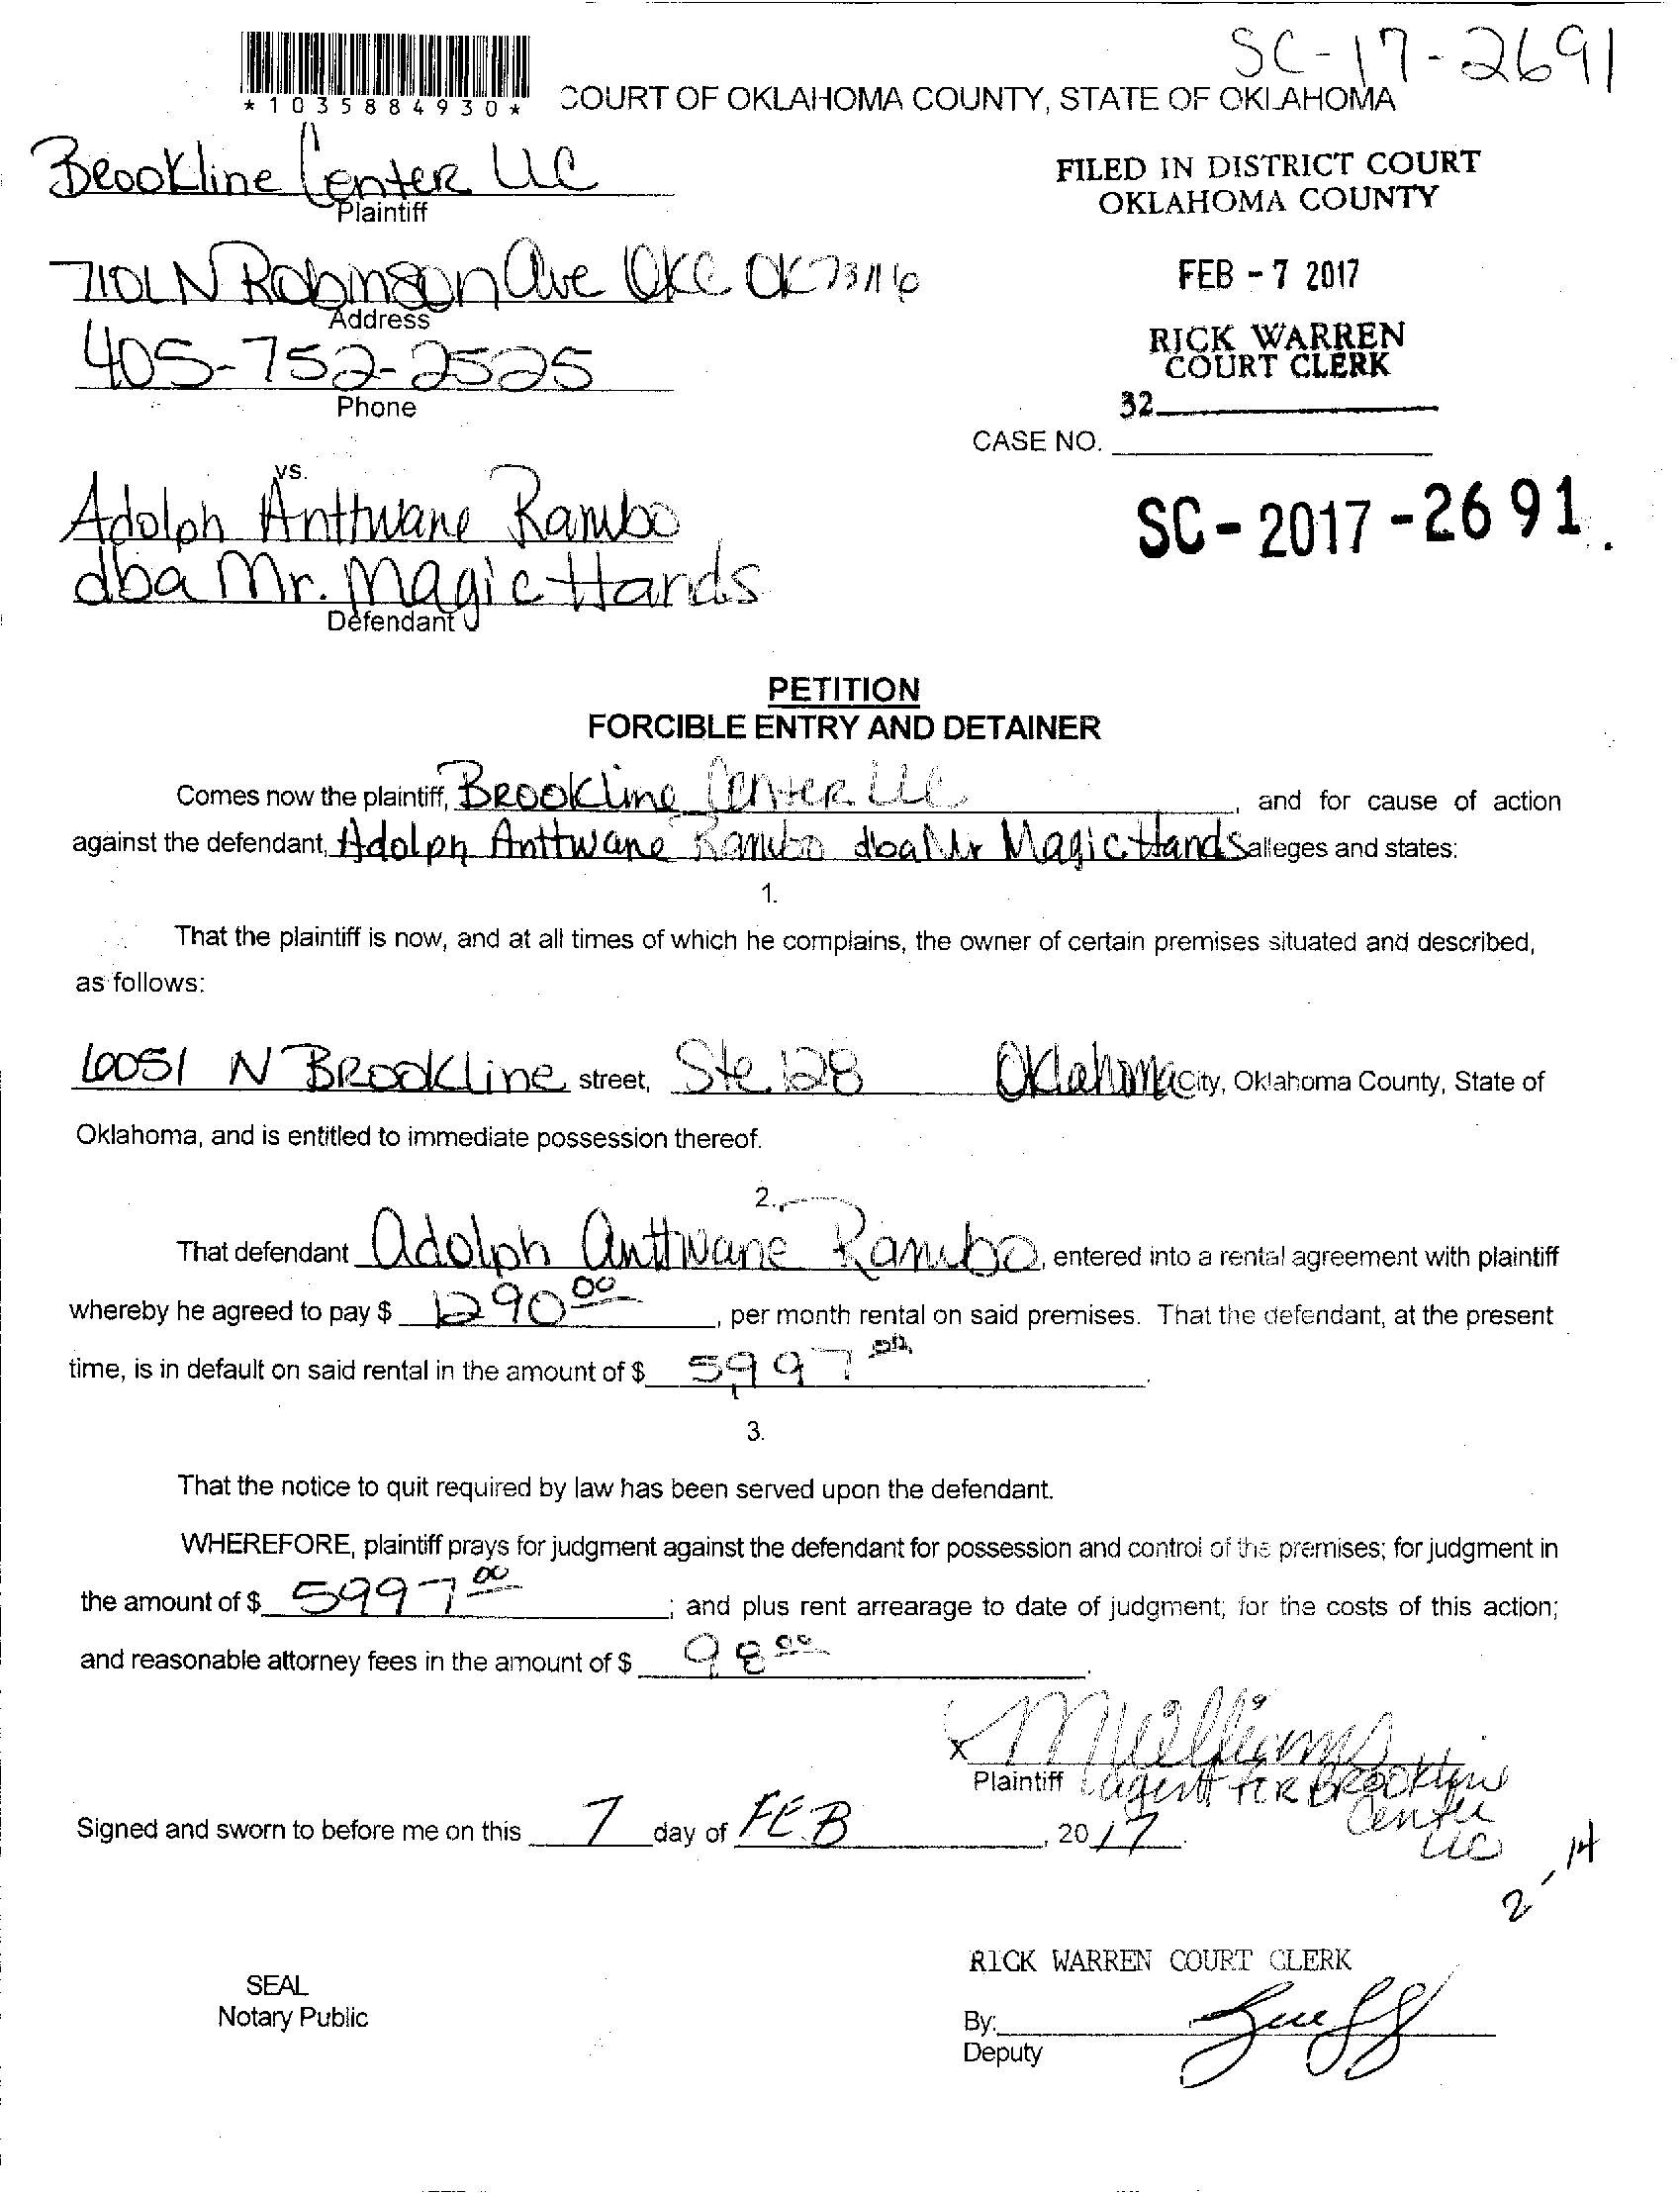 SC-17-2691
*1035884930*
COURT OF OKLAHOMA COUNTY, STATE OF OKLAHOMA
Brookline Center LLC
Plaintiff
FILED IN DISTRICT COURT
OKLAHOMA COUNTY
7101 N Robinson Ave OKC OK 73116
Address
FEB - 7 2017
405-752-2525
Phone
RICK WARREN
COURT CLERK
32
CASE NO.
vs.
Adolph Anttwane Rambo
dba Mr. Magic Hands
Defendant
SC - 2017 - 2691
PETITION
FORCIBLE ENTRY AND DETAINER
Comes now the plaintiff, Brookline Center LLC, and for cause of action
against the defendant, Adolph Anttwane Rambo dba Mr Magic Hands alleges and states:
1.
That the plaintiff is now, and at all times of which he complains, the owner of certain premises situated and described,
as follows:
6051 N Brookline street, Ste. 128 Oklahoma City, Oklahoma County, State of
Oklahoma, and is entitled to immediate possession thereof.
2.
That defendant Adolph Anttwane Rambo, entered into a rental agreement with plaintiff
whereby he agreed to pay $ 1290 00, per month rental on said premises. That the defendant, at the present
time, is in default on said rental in the amount of $ 5,997 00.
3.
That the notice to quit required by law has been served upon the defendant.
WHEREFORE, plaintiff prays for judgment against the defendant for possession and control of the premises; for judgment in
the amount of $ 5997 00; and plus rent arrearage to date of judgment; for the costs of this action;
and reasonable attorney fees in the amount of $ 98 00.
x MWilliams
Plaintiff agent for Brookline
Center
LLC
Signed and sworn to before me on this 7 day of FEB, 2017.
2-14
RICK WARREN COURT CLERK
SEAL
Notary Public
By:
Deputy